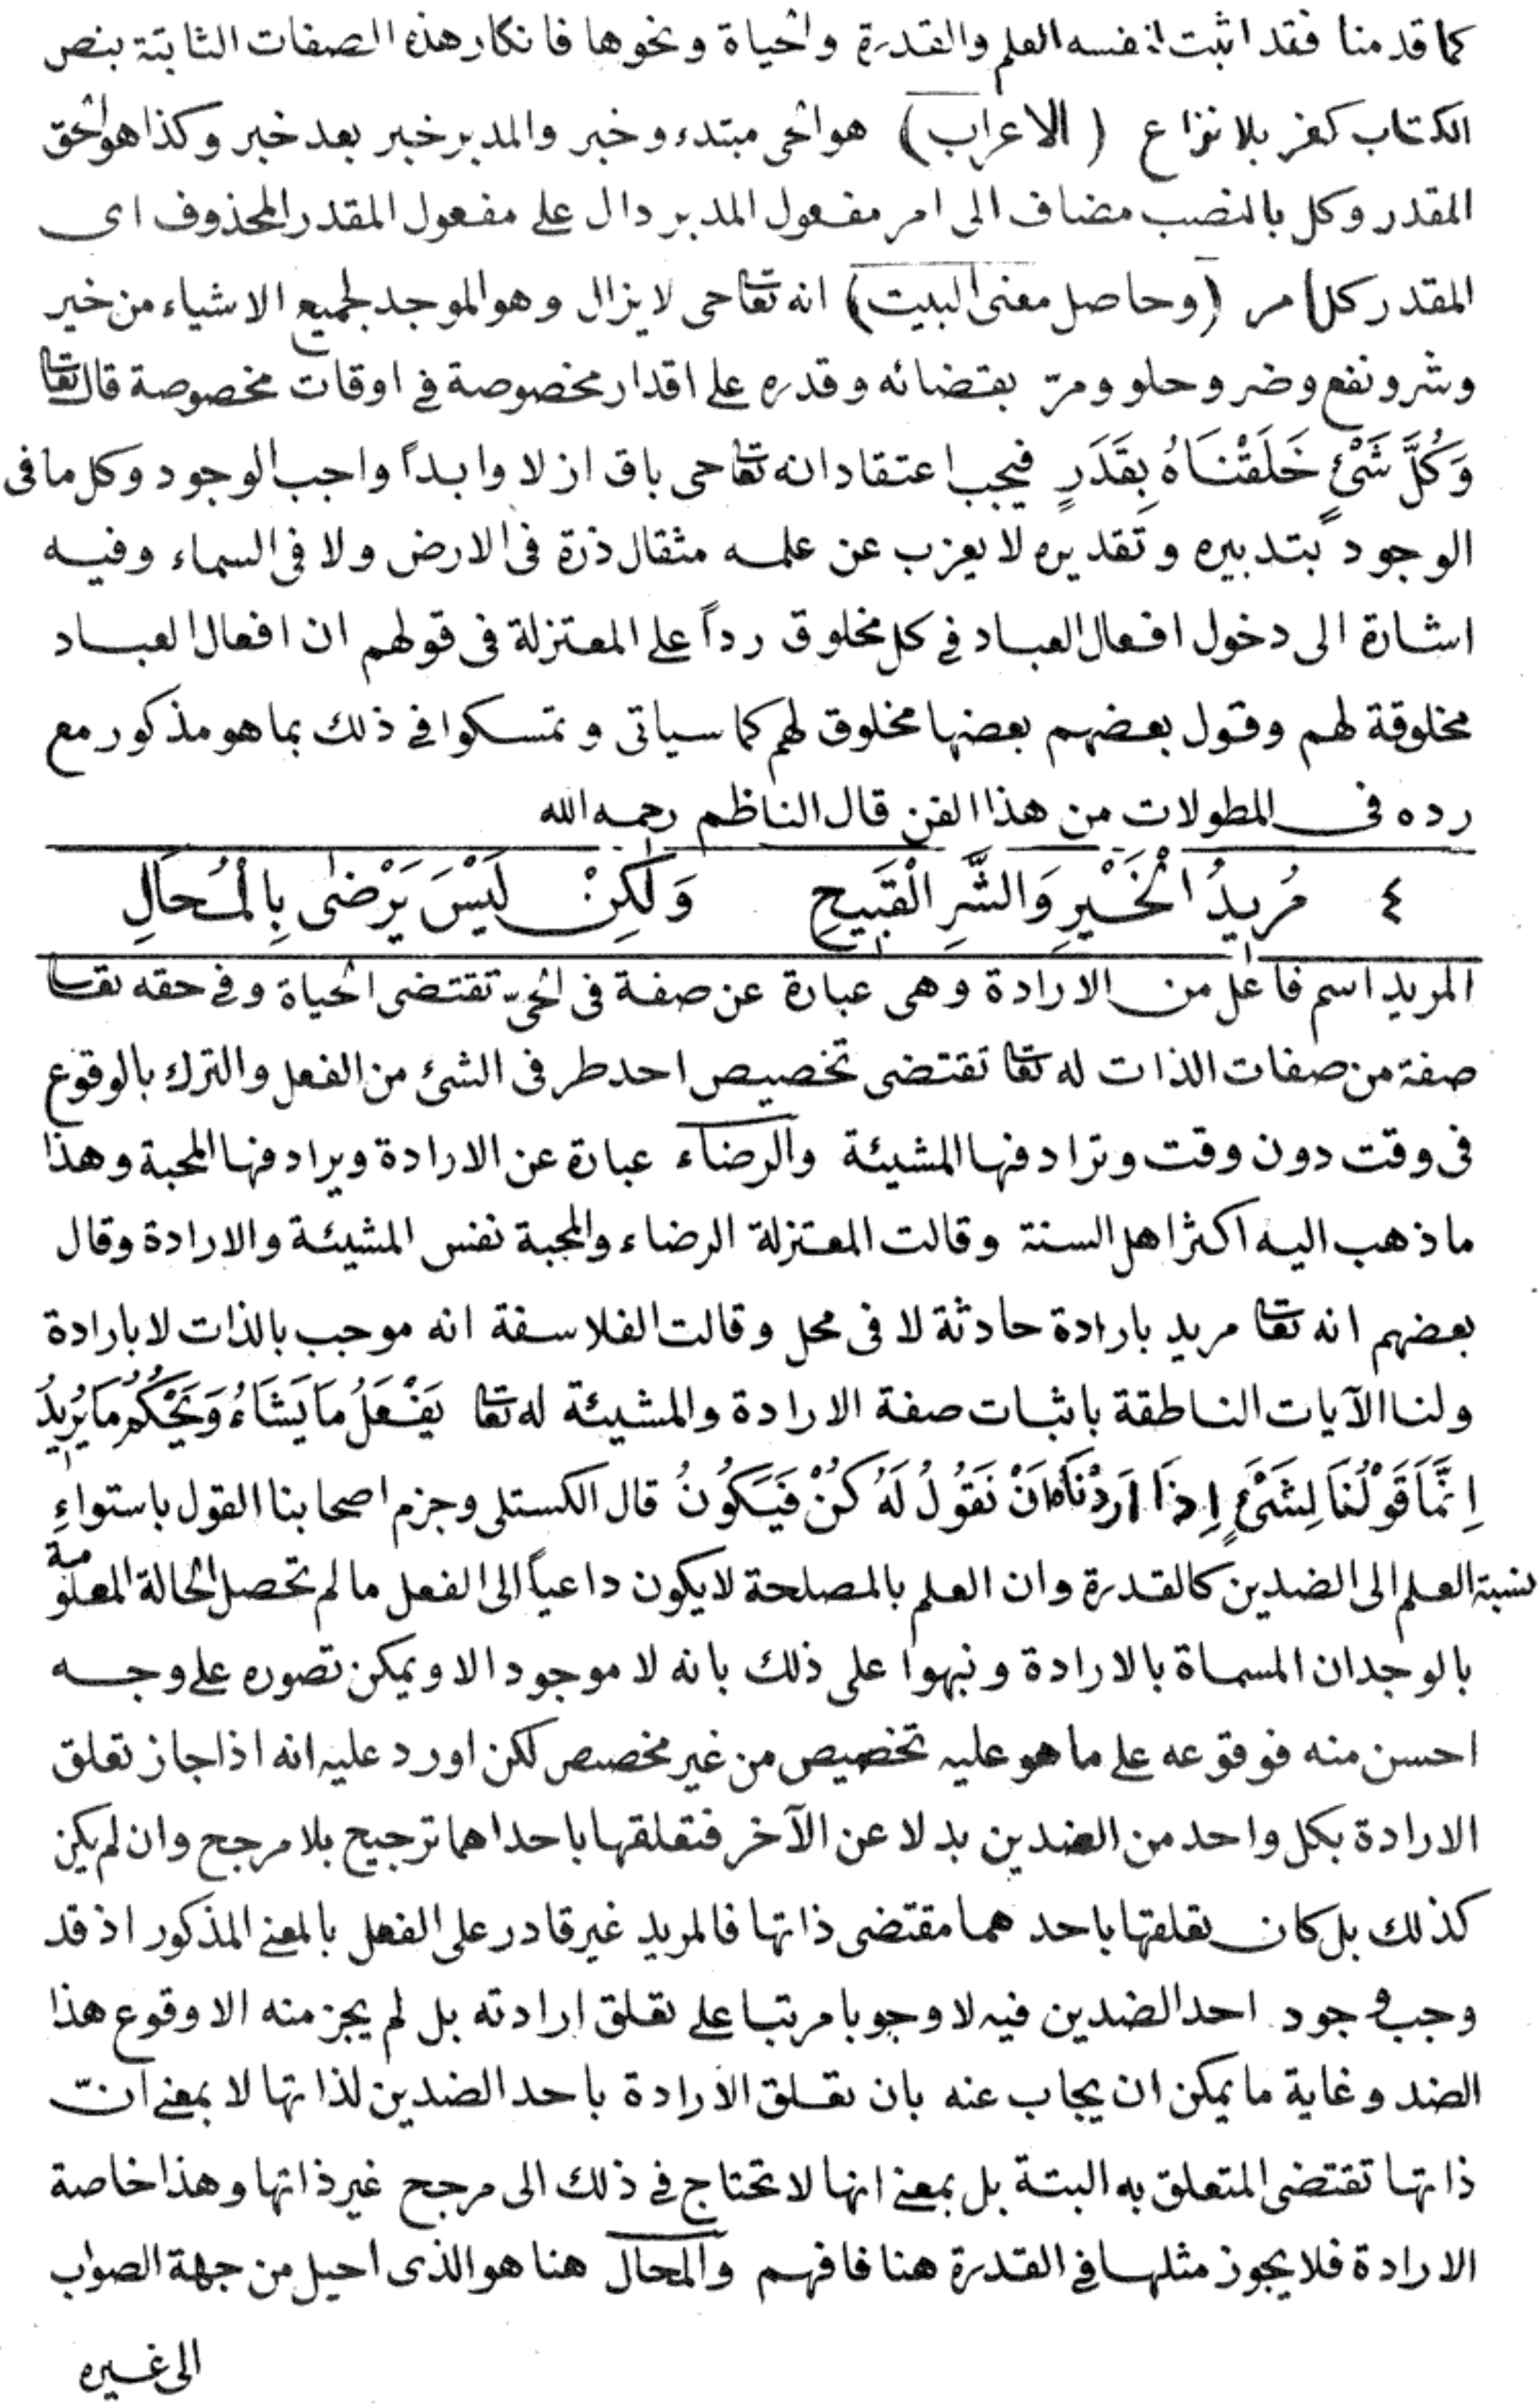 كما قدمنا فقد اثبت لنفسه العلم والقدرة والحياة ونحوها فانكار هذه الصفات الثابتة بنص
الكتاب كفر بلا نزاع (الاعراب) هو الحى مبتدء وخبر والمدبر خبر بعد خبر وكذا هو الحق
المقدر وكل بالنصب مضاف الى امر مفعول المدبر دال على مفعول المقدر المحذوف اى
المقدر كل امر (وحاصل معنى البيت) انه تعا حى لا يزال وهو الموجد لجميع الاشياء من خير
وشر ونفع وضر وحلو ومرّ بقضائه وقدره على اقدار مخصوصة فى اوقات مخصوصة قال تعا
وَكُلَّ شَىْءٍ خَلَقْنَاهُ بِقَدَرٍ فيجب اعتقاد انه تعا حى باق ازلا وابداً واجب الوجود وكل ما فى
الوجود بتدبيره وتقديره لا يعزب عن علمه مثقال ذرة فى الارض ولا فى السماء وفيه
اشارة الى دخول افعال العباد فى كل مخلوق رداً على المعتزلة فى قولهم ان افعال العباد
مخلوقة لهم وقول بعضهم بعضها مخلوق لهم كما سياتى وتمسكوا فى ذلك بما هو مذكور مع
رده فى المطولات من هذا الفن قال الناظم رحمه الله
٤ مُرِيدُ الْخَيْرِ وَالشَّرِ الْقَبِيحِ وَلَكِنْ لَيْسَ يَرْضٰى بِالْمُحَالِ
المريد اسم فاعل من الارادة وهى عبارة عن صفة فى الحىّ تقتضى الحياة وفى حقه تعا
صفة من صفات الذات له تعا تقتضى تخصيص احد طرفى الشئ من الفعل والترك بالوقوع
فى وقت دون وقت وترادفها المشيئة والرضاء عبارة عن الارادة ويرادفها المحبة وهذا
ما ذهب اليه اكثر اهل السنة وقالت المعتزلة الرضاء والمحبة نفس المشيئة والارادة وقال
بعضهم انه تعا مريد بارادة حادثة لا فى محل وقالت الفلاسفة انه موجب بالذات لا بارادة
ولنا الآيات الناطقة باثبات صفة الارادة والمشيئة له تعا يَفْعَلُ مَا يَشَاءُ وَيَحْكُمُ مَا يُرِيدُ
اِنَّمَا قَوْلُنَا لِشَىْءٍ اِذَا اَرَدْنَاهُ اَنْ نَقُولُ لَهُ كُنْ فَيَكُونُ قال الكستلى وجزم اصحابنا القول باستواءِ
نسبة العلم الى الضدين كالقدرة وان العلم بالمصلحة لا يكون داعياً الى الفعل ما لم تحصل الحالة المعلومة
بالوجدان المسماة بالارادة ونبهوا على ذلك بانه لا موجود الا ويمكن تصوره على وجه
احسن منه فوقوعه على ما هو عليه تخصيص من غير مخصص لكن اورد عليه انه اذا جاز تعلق
الارادة بكل واحد من الضدين بدلا عن الآخر فتعلقها باحداهما ترجيح بلا مرجح وان لم يكن
كذلك بل كان تعلقها باحدهما مقتضى ذاتها فالمريد غير قادر على الفعل بالمعنى المذكور اذ قد
وجب وجود احد الضدين فيه لا وجوبا مرتبا على تعلق ارادته بل لم يجز منه الا وقوع هذا
الضد وغاية ما يمكن ان يجاب عنه بان تعلق الارادة باحد الضدين لذاتها لا بمعنى انّ
ذاتها تقتضى المتعلق به البتة بل بمعنى انها لا تحتاج فى ذلك الى مرجح غير ذاتها وهذا خاصة
الارادة فلا يجوز مثلها فى القدرة هنا فافهم والمحال هنا هو الذى احيل من جهة الصواب
الى غيره